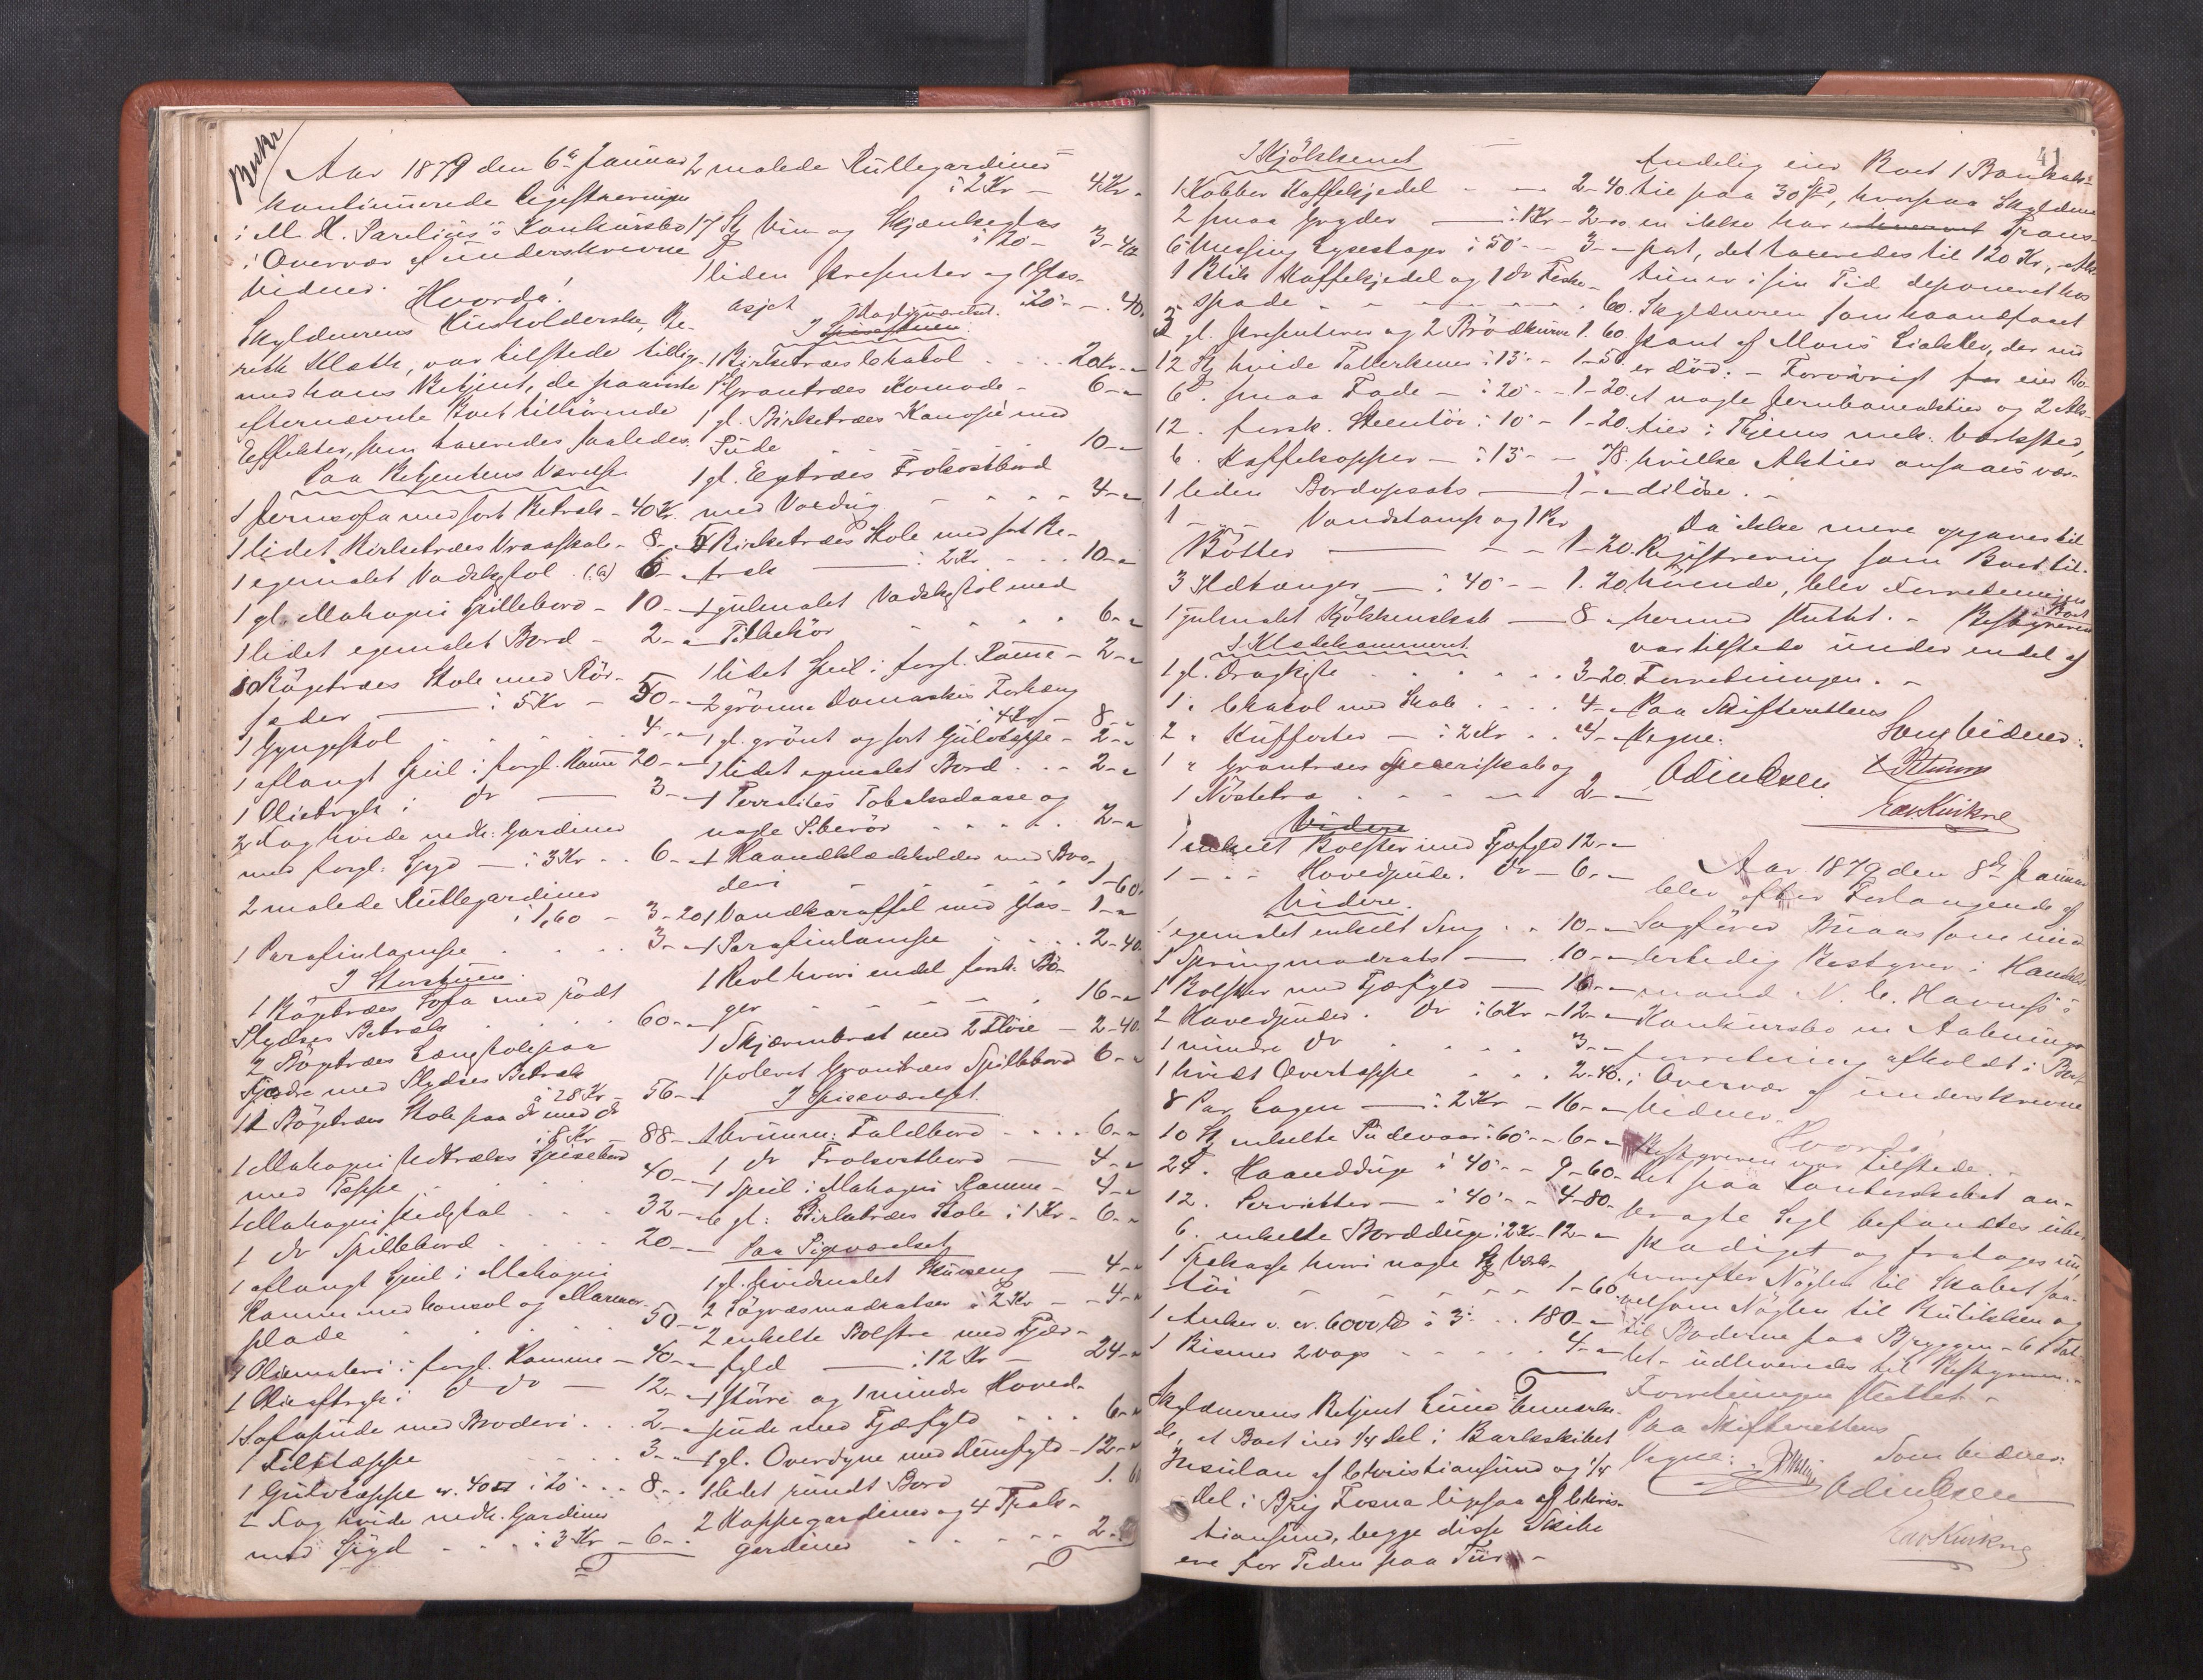 Aar 1879 den 6te Januar
kontinuerede Registreringen
i M. H. Parelius's Konkursbo
i Overvær af underskrevne
Vidner.
Hvorda!
Skyldnerens Husholderske, Be-
reth Kleth, var tilstede tillige
med hans Betjent, de paaviste
efternævnte Boet tilhørende
Effekter, som taxeredes saaledes.
Paa Betjentens Værelse
1 Jernsofa med sort Betræk - 40 Kr.
1 lidet Birketræes Vraaskab - 8 -
1 egemalet Vadskestol 6 -
1 gl. Mahogni Spillebord - 10 -
1 lidet egemalet Bord - 2 -
10 Bøgetræes Stole med Rør-
sæder à 5 Kr - 50 -
1 Gyngestol 4 -
1 aflangt Speil i forgl. Ramme 20 -
1 Olietryk i do 3 -
2 Fag hvide nedh. Gardiner
med forgl. Gzd à 3 Kr 6 -
2 malede Rullegardiner
à 1,60 - 3-20
1 Parafinlampe 3 -
I Storstuen.
1 Bøgetræes Sofa med rødt
Plydses Betræk 60 -
2 Bøgetræes Lænestole paa
Fjædre med Plydses Betræk
à 28 Kr - 56 -
11 Bøgetræes Stole paa do med do
à 8 Kr - 88 -
1 Mahogni Udtræks Spisebord
med Tæppe 40 -
1 Mahogni 32 -
1 do Spillebord 20 -
1 aflangt Speil i Mahogni
Ramme med Konsol og Marmor-
plade 50 -
Oliemaleri i forgl. Ramme - 40 -
1 Olietryk i do do - 12 -
1 Sofapude med Broderi 2 -
1 Filttæppe 3 -
1 Gulvtæppe 8 -
2 Fag hvide nedh. Gardiner
med à 3 Kr - 6 -
2 malede Rullegardiner
à 2 Kr - 4 Kr -
17 St Vin og Skjænkeglas
à 20 - 3-40
1 liden Presenter og 1 Glas-
asjet 20 - 40
I Spisestuen.
1 Birketræes Chatol 20 Kr -
1 Grantræes Komode - 6 -
1 gl. Birketræes Kanapé med
Pude 10 -
1 gl. Egetræes Frokostbord
med Voxdug 4 -
5 Birketræes Stole med sort Be-
træk à 2 Kr 10 -
1 gulmalet Vadskestol med
Tilbehør 6 -
1 lidet Speil i forgl. Ramme - 2 -
2 grønne Damaskes Forhæng
à 4 Kr - 8 -
1 gl. grønt og sort Gulvtæppe - 2 -
1 lidet egemalet Bord 2 -
1 Terralites Tobaksdaase og
nogle Piberør 2 -
1 Haandklædeholder med Bro-
deri 1-60
1 Vandkaraffel med Glas - 1 -
1 Parafinlampe 2-40
1 Reol hvori endel forsk. Bø-
ger 16 -
1 Skjærmbræt med 2 Fløie - 2-40
1 poleret Grantræes Spillebord 6 -
I Spiseværelset.
1 brunm. Faldbord 6 -
1 do Frokostbord 4 -
1 Speil i Mahogni Ramme - 4 -
6 gl. Birketræes Stole à 1 Kr - 6 -
Paa Pigeværelset
1 gl. hvidmalet 4 -
2 Søgræsmadratser à 2 Kr - 4 -
2 enkelte Bolstre med Fjær-
fyld à 12 Kr - 24 -
1 større og 1 mindre Hoved-
pude med Fjæfyld 6 -
1 gl. Overdyne med Dunfyld - 12 -
1 lidet rundt Bord 1.
2 Kappegardiner og 4 Træk-
gardiner 2
41
I Kjøkkenet
1 Kobber Kaffekjedel 2-40
2 smaa Gryder à 1 Kr - 2 -
6 Messing Lysestager à 50 - 3 -
1 Blik Kaffekjedel og 1 do Fiske-
spade 60
gl. Presenterer og 2 Brødkurve 1.60
12 St hvide Tallerkener à 13 - 1-56
6 smaa Fade - à 20 - 1-20
12 forsk. Steentøi à 10 - 1-20
6 Kaffekopper - à 13 - 78
1 liden Bordopsats 1 -
1 - Vandkamp og 1 Par
Bøtter 1-20
3 Ildtænger à 40 - 1.20
1 gulmalet Kjøkkenskab 8 -
I Klædekammeret
1 gl. Dragkiste 3-20
1 " Chatol med Skab 4 -
2 " Kufferter - à 2 Kr 4 -
1 " Grantræes Speceriskab og
1 Nøstetræ 2 -
Videre
1 enkelt Bolster med Fjæfyld 12 -
1 - Hovedpude do - 6 -
Videre.
1 egemalet enkelt Seng 10 -
1 Springmadrats 10 -
1 Bolster med Fjæfyld 16 -
2 Hovedpuder do à 6 Kr - 12 -
1 mindre do 3 -
1 hvidt Overtæppe 2-40
8 Par Lagen à 2 Kr - 16 -
10 St enkelte Pudevaar à 60 - 6 -
24 Haandduge à 40 - 9-60
12 Servietter à 40 - 4-80
6 enkelte Borddüge à 2 Kr - 12 -
1 Spekasse hvori nogle St Værk-
tøi 1-60
1 Anker v. ca. 6000 à 3 180 -
1 Bismer 2 vogs 4 -
Skyldnerens Betjent Lund bemærke-
de, at Boet eier 1/4 Del i Barkskibet
Insulan af Christiansund og 1/4
Del i Brig Fosna ligesaa af Chris-
tiansund, begge disse Skibe
ere for Tiden paa Tur. -
Endelig eier Boet 1 Bankak-
tie paa 30 Spd, hvorpaa Skyldne-
en ikke har erhvervet Trans-
port, det taxeredes til 120 Kr, Ak-
tien er i sin Tid deponeret hos
Skyldneren som haandfaaet
Pant af Mons Liabø, der nu
er død. - Forøvrigt eier Bo-
et nogle Jernbaneaktier og 2 Ak-
tier i Thjems mek. Værksted,
hvilke Aktier ansaaes vær-
diløse. -
Da ikke mere opgaves til
Registrering som Boet til-
hørende, blev Forretningen
hermed sluttet. - Bestyreren i Boet
var tilstede under endel af
Forretningen. -
Paa Skifterettens
Vegne: Som Vidner:
Odin Olsen
Edv Kvikne
Aar 1879 den 8de Januar
blev efter Forlangende af
Sagfører Maas som mid-
lertidig Bestyrer i Handels-
mand N. C. Havnes's
Konkursbo en Aabnings-
forretning afholdt i Boet
i Overvær af underskrevne
Vidner.
Hvorda!
Bestyreren var tilstede. -
Det paa Kontorskabet an-
bragte Segl befandtes ube-
skadiget og fratoges nu,
hvorefter Nøglen til Skabet saa-
velsom Nøglen til Butikken og
til Boderne paa Bryggen - 6 i Tal-
let - udleveredes til Bestyreren. -
Forretningen sluttet. -
Paa Skifterettens
Vegne: Som Vidner:
Odin Olsen
Edv Kvikne